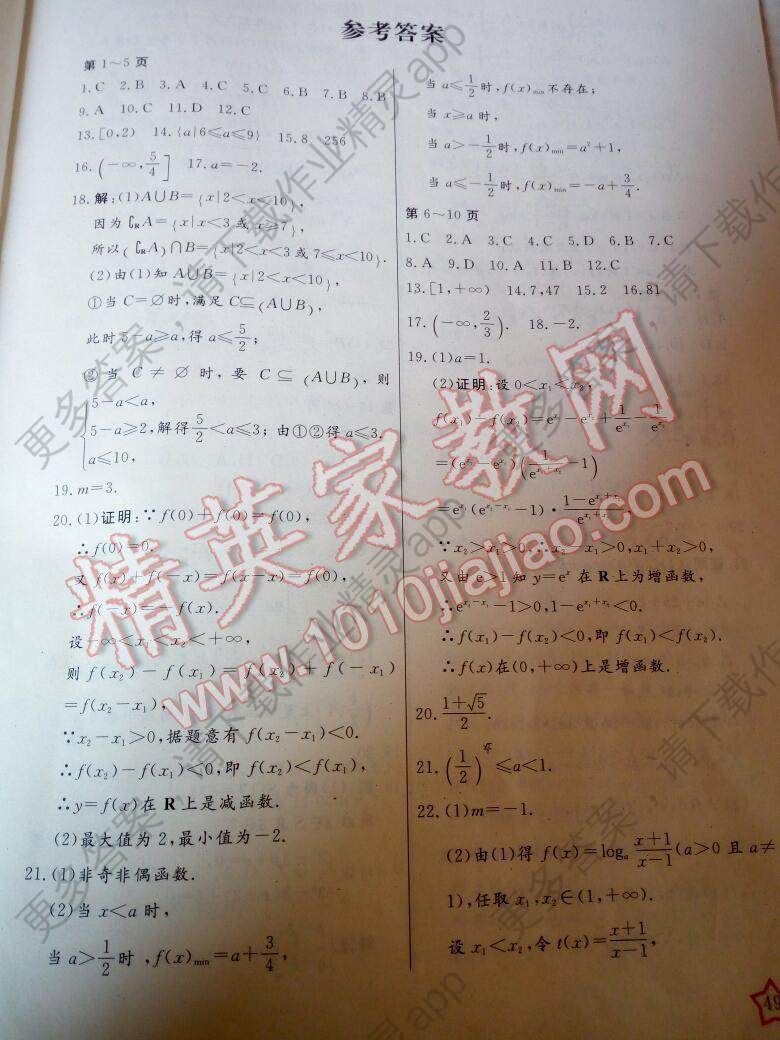 参考答案
第1～5页
1.C 2.B 3.A 4.C 5.C 6.B 7.B 8.B
9.A 10.C 11.D 12.C
13.[0,2) 14.{a|6≤a≤9} 15.8 256
16.(-∞,5/4] 17.a=-2.
18.解:(1)A∪B={x|2<x<10},
因为∁RA={x|x<3或x≥7},
所以(∁RA)∩B={x|2<x<3或7≤x<10}.
(2)由(1)知A∪B={x|2<x<10},
①当C=∅时,满足C⊆(A∪B),
此时5-a≥a,得a≤5/2;
②当C≠∅时,要C⊆(A∪B),则
{5-a<a,
5-a≥2,解得5/2<a≤3;由①②得a≤3.
a≤10,
19.m=3.
20.(1)证明:∵f(0)+f(0)=f(0),
∴f(0)=0.
又f(x)+f(-x)=f(x-x)=f(0),
∴f(-x)=-f(x).
设-∞<x₁<x₂<+∞,
则f(x₂)-f(x₁)=f(x₂)+f(-x₁)
=f(x₂-x₁),
∵x₂-x₁>0,据题意有f(x₂-x₁)<0.
∴f(x₂)-f(x₁)<0,即f(x₂)<f(x₁),
∴y=f(x)在R上是减函数.
(2)最大值为2,最小值为-2.
21.(1)非奇非偶函数.
(2)当x<a时,
当a>1/2时,f(x)min=a+3/4,
当a≤1/2时,f(x)min不存在;
当x≥a时,
当a>-1/2时,f(x)min=a²+1,
当a≤-1/2时,f(x)min=-a+3/4.
第6～10页
1.C 2.A 3.C 4.C 5.D 6.B 7.C
8.A 9.D 10.A 11.B 12.C
13.[1,+∞) 14.7,47 15.2 16.81
17.(-∞,2/3). 18.-2.
19.(1)a=1.
(2)证明:设0<x₁<x₂,
f(x₁)-f(x₂)=e^x₁-e^x₂+1/e^x₁-1/e^x₂
=(e^x₂-e^x₁)(1/e^(x₁+x₂)-1)
=e^x₁(e^(x₂-x₁)-1)·(1-e^(x₁+x₂))/e^(x₁+x₂),
∵x₂>x₁>0,∴x₂-x₁>0,x₁+x₂>0,
又由e>1知y=e^x在R上为增函数,
∴e^(x₂-x₁)-1>0,1-e^(x₁+x₂)<0.
∴f(x₁)-f(x₂)<0,即f(x₁)<f(x₂).
∴f(x)在(0,+∞)上是增函数.
20.(1+√5)/2.
21.(1/2) ≤a<1.
22.(1)m=-1.
(2)由(1)得f(x)=logₐ(x+1)/(x-1)(a>0且a≠
1),任取x₁,x₂∈(1,+∞).
设x₁<x₂,令t(x)=(x+1)/(x-1),
49
精英家教网
www.1010jiajiao.com
更多答案,请下载作业精灵app
更多答案,请下载作业精灵app
请下载作业精灵app